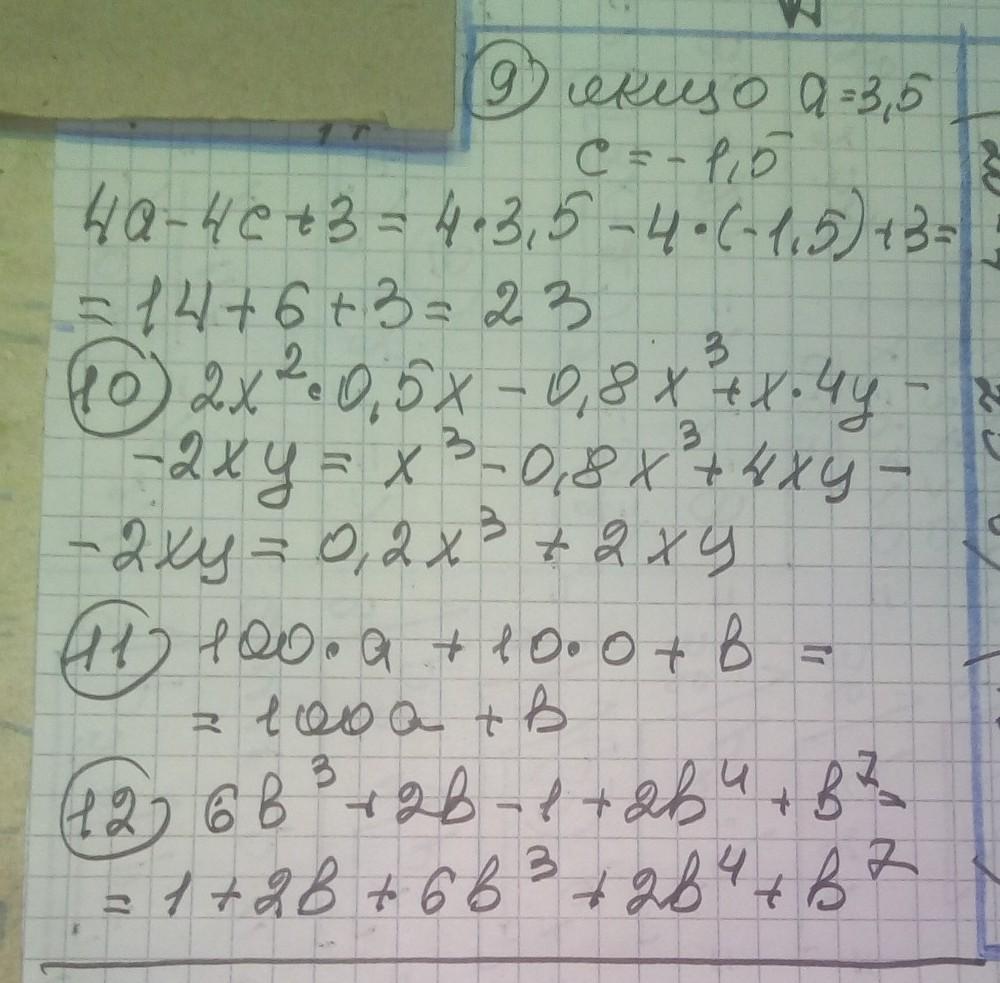 9) якщо a=3,5
c = -1,5
4a-4c+3 = 4·3,5 -4·(-1,5)+3=
= 14+6+3= 23
10) 2x²·0,5x - 0,8x³+x·4y -
-2xy = x³-0,8x³+4xy -
-2xy= 0,2x³ + 2xy
11) 100·a + 10·0+ b =
= 100a + b
12) 6b³+2b-1+2b⁴+b⁷=
= 1+2b+6b³+2b⁴+b⁷